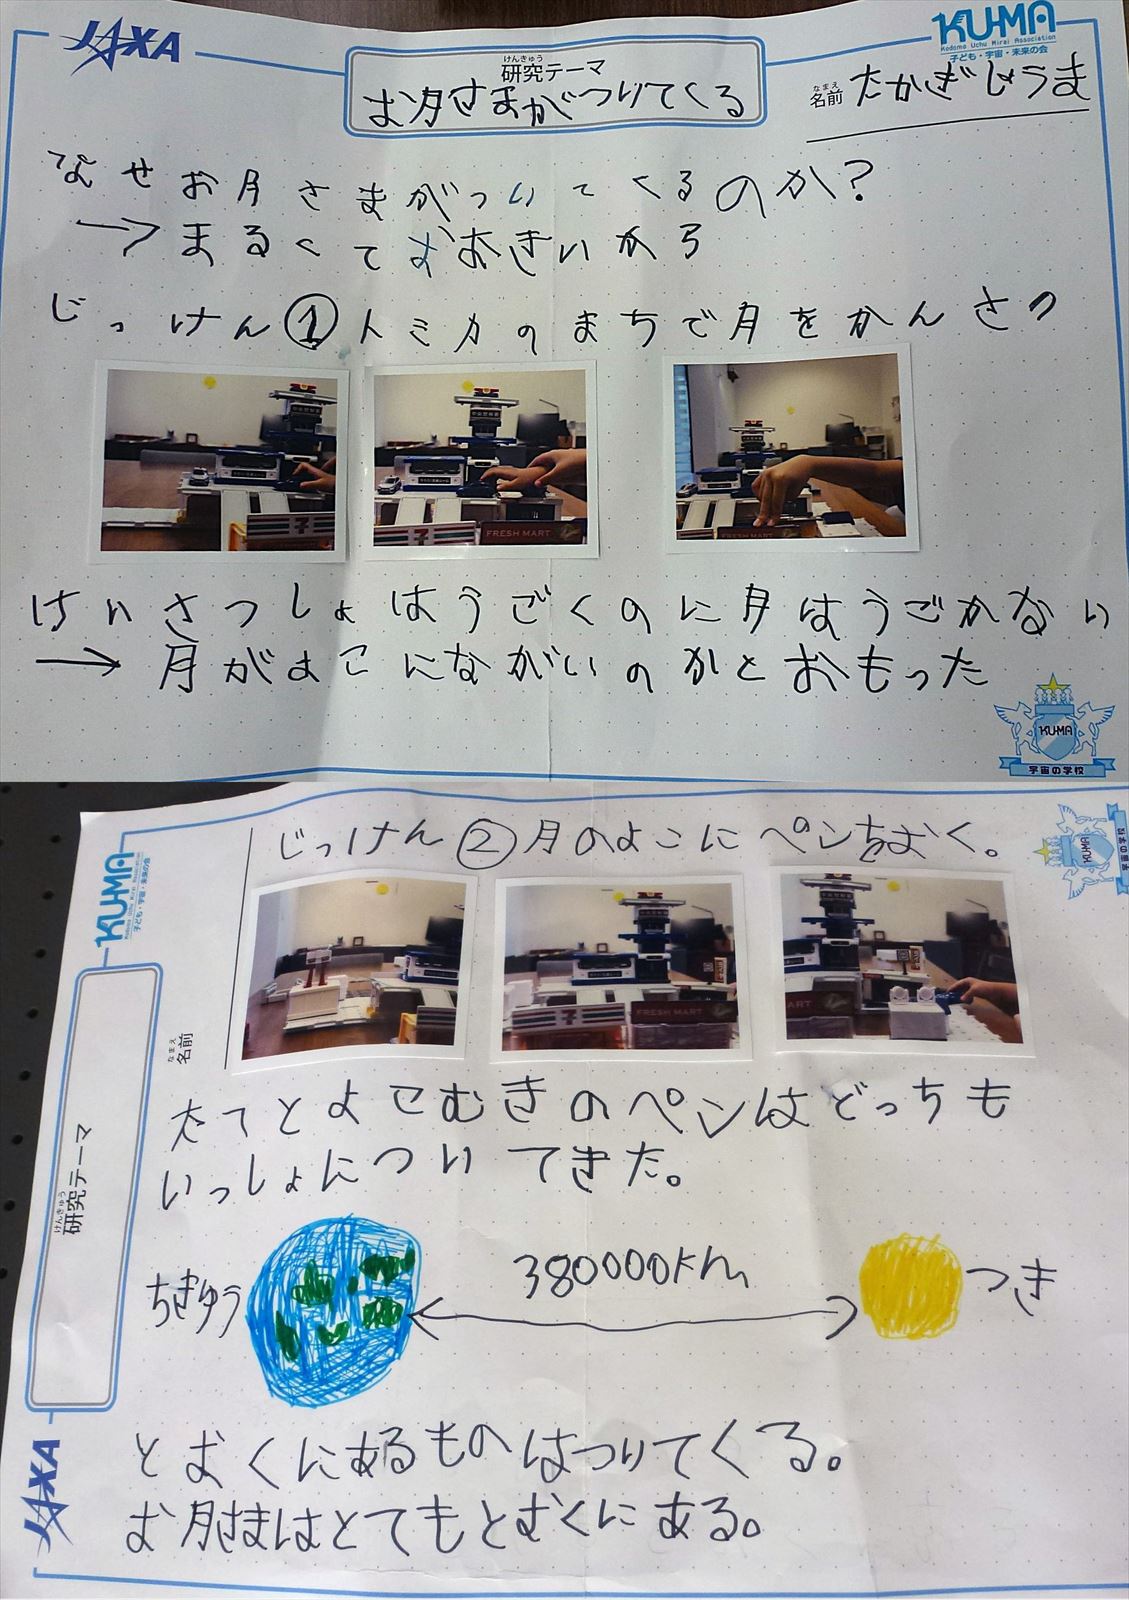 JAXA
KU-MA
Kodomo Uchu Mirai Association
子ども・宇宙・未来の会
けんきゅう
研究テーマ
お月さまがついてくる
なまえ
名前 たかぎじょうま
なぜお月さまがついてくるのか?
→まるくておおきいから
じっけん①トミカのまちで月をかんさつ
FRESH MART
けいさつしょはうごくのに月はうごかない
→月がよこにながいのかとおもった
KU-MA
宇宙の学校
じっけん②月のよこにペンをおく。
KU-MA
宇宙の学校
KU-MA
Kodomo Uchu Mirai Association
子ども・宇宙・未来の会
FRESH MART
なまえ
名前
けんきゅう
研究テーマ
たてとよこむきのペンはどっちも
いっしょについてきた。
ちきゅう
380000km
つき
とおくにあるものはついてくる。
お月さまはとてもとおくにある。
JAXA